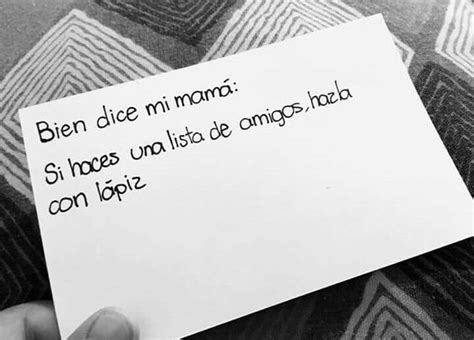 Bien dice mi mamá:
Si haces una lista de amigos, hazla
con lápiz